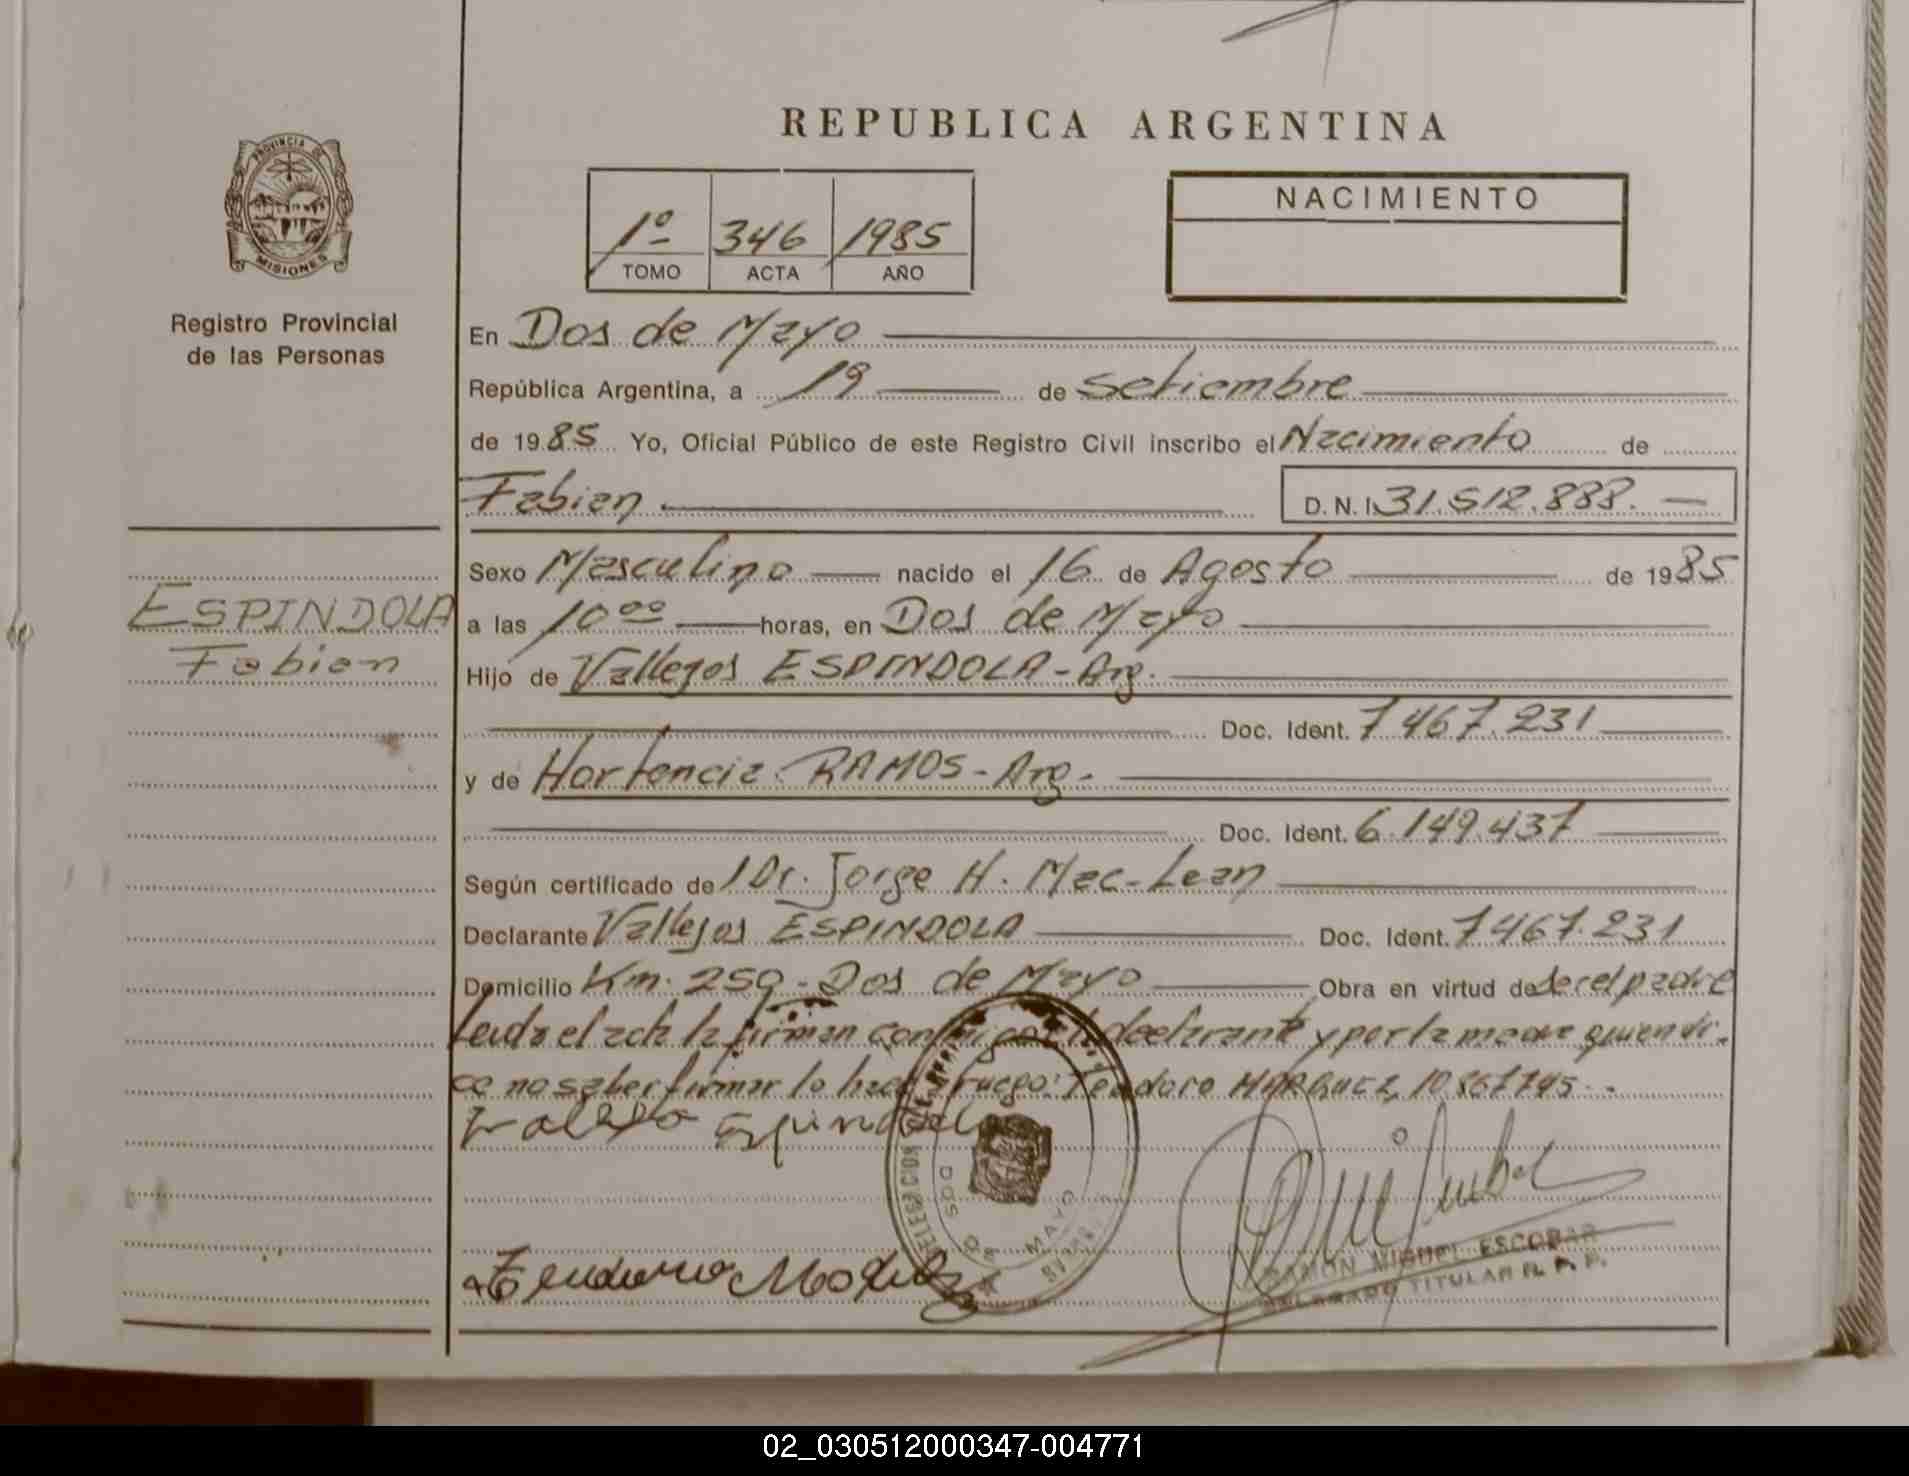 REPUBLICA ARGENTINA
PROVINCIA DE
MISIONES
Registro Provincial
de las Personas
1º 346 1985
TOMO ACTA AÑO
NACIMIENTO
En Dos de Mayo
República Argentina, a 19 de Setiembre
de 1985 Yo, Oficial Público de este Registro Civil inscribo el Nacimiento de
Fabian D.N.I. 31.512.888.
Sexo Masculino nacido el 16 de Agosto de 1985
ESPINDOLA
Fabian
a las 10 00 horas, en Dos de Mayo
Hijo de Vallejos ESPINDOLA - Arg.
Doc. Ident. 7.467.231
y de Hortencia RAMOS - Arg.
Doc. Ident. 6.149.437
Según certificado de Dr. Jorge H. Mac-Lean
Declarante Vallejos ESPINDOLA Doc. Ident. 7.467.231
Domicilio Km. 259 - Dos de Mayo Obra en virtud de ser el padre
Leida el acta la firman conmigo el declarante y por la madre quien di-
ce no saber firmar lo hace a ruego: Teodoro MARQUEZ, 10.867.745.
Espindola
DELEGACION
DOS DE MAYO
RAMON MIGUEL ESCOBAR
DELEGADO TITULAR R. P. P.
02_030512000347-004771